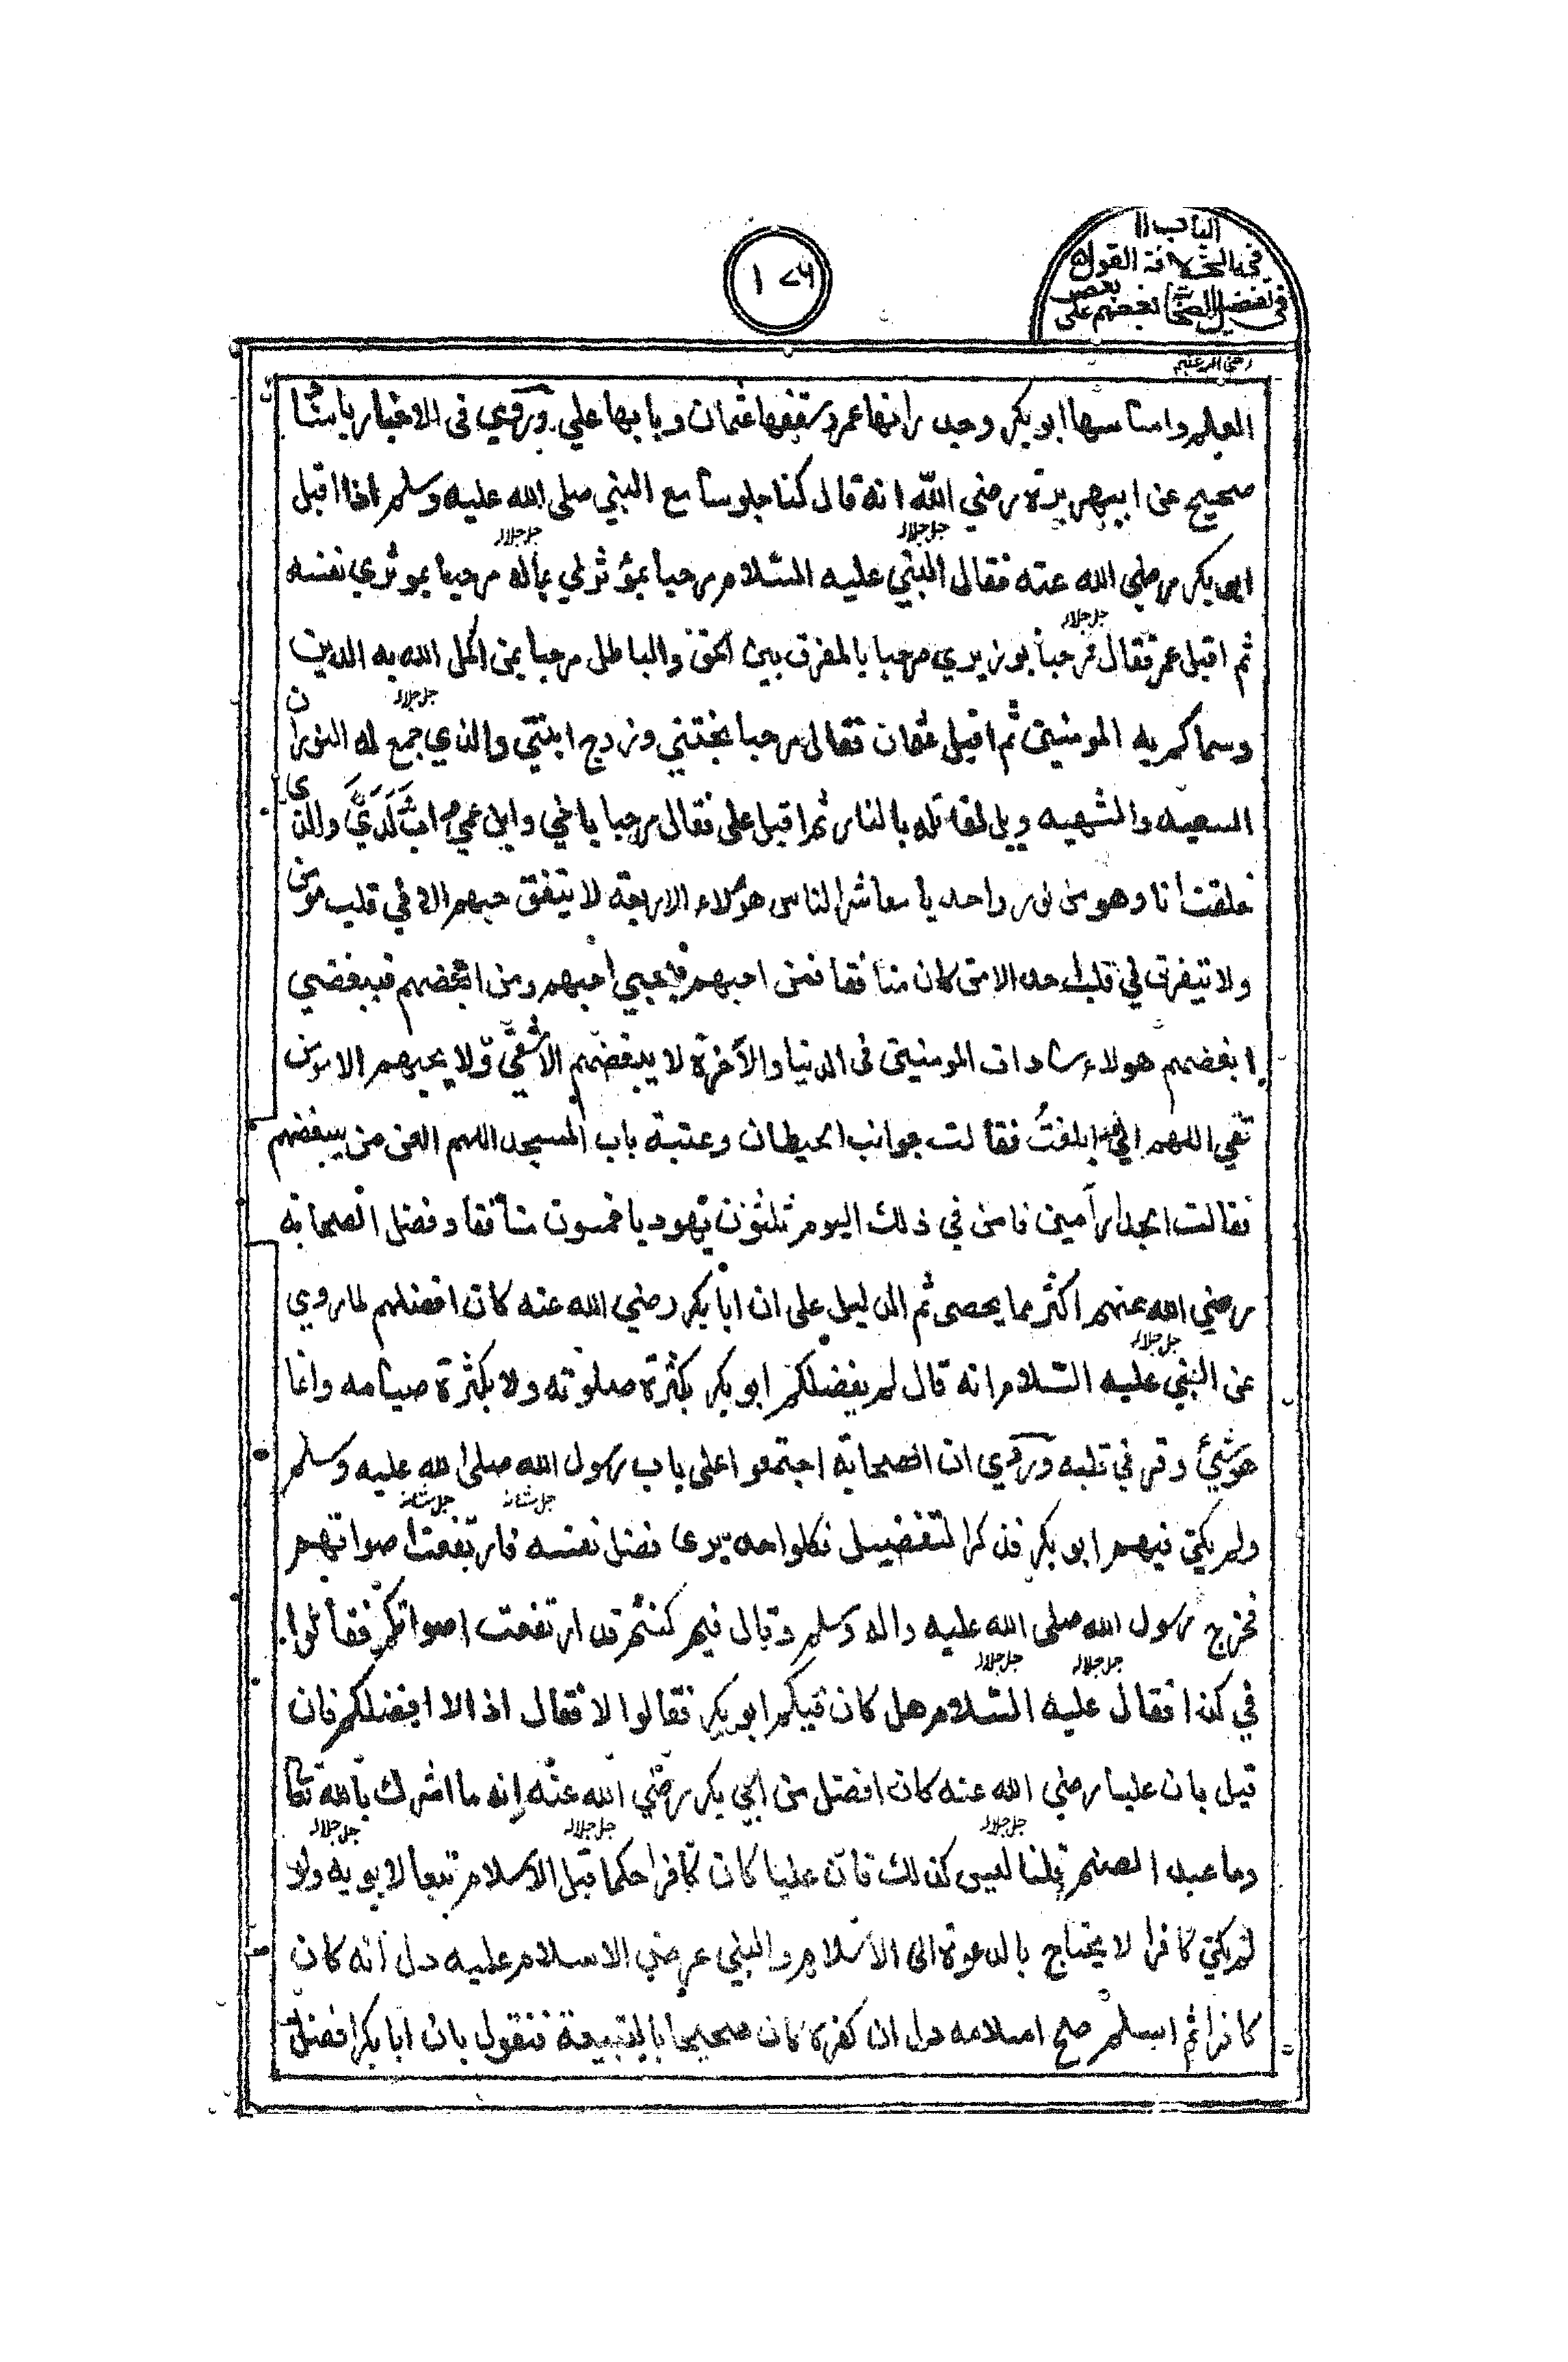 الباب ١١
في الخلافة القول
في تفضيل الصحابة بعضهم على بعض
١٧٦
رضي الله عنهم
العلم واساسها ابو بكر وجدرانها عمر وسقفها عثمان وبابها علي وروي في الاخبار باسنا
صحيح عن ابيهريرة رضي الله انه قال كنا جلوسا مع النبي صلى الله عليه وسلم اذا اقبل
ابي بكر رضي الله عنه فقال النبي عليه السلام مرحبا بمؤثرلي بماله مرحبا بموثري نفسه
ثم اقبل عمر فقال مرحبا بوزيري مرحبا بالمفرق بين الحق والباطل مرحبا بمن اكمل الله به الدين
وسماكم به المومنين ثم اقبل عثمان فقال مرحبا بختني وزوج ابنتي والذي جمع له النوران
السعيد والشهيد ويل لقاتله بالنار ثم اقبل علي فقال مرحبا باخي وابن عمي احب لدي والذي
خلقت انا وهو من نور واحد يا معاشر الناس هؤلاء الاربعة لا يتفق حبهم الا في قلب مومن
ولا تيفرق في قلب احد الا من كان منافقا فمن احبهم فبحبي احبهم ومن ابغضهم فببغضي
ابغضهم هولاء سادات المومنين في الدنيا والآخرة لا يبغضهم الا شقي ولا يحبهم الا مومن
تقي اللهم اني ابلغت فقالت جوانب الحيطان وعتبة باب المسجد اللهم العن من يبغضهم
فقالت الجدار آمين فامن في ذلك اليوم ثلثون يهوديا خمسون منافقا وفضل الصحابه
رضي الله عنهم اكثر مما يحصى ثم الدليل على ان ابا بكر رضي الله عنه كان افضلهم لما روي
عن النبي عليه السلام انه قال لم يفضلكم ابو بكر بكثرة صلوته ولا بكثرة صيامه وانما
هو شيئ وقر في قلبه وروي ان الصحابة اجتمعوا على باب رسول الله صلى الله عليه وسلم
ولم يكن فيهم ابو بكر فذكرا لتفضيل فكلوا حد يرى فضل نفسه فارتفعت اصواتهم
فخرج رسول الله صلى الله عليه واله وسلم وقال فيم كنتم قد ارتفعت اصواتكم فقالوا
في كذا فقال عليه السلام هل كان فيكم ابو بكر فقالوا لا فقال اذ الا افضلكم فان
قيل بان عليا رضي الله عنه كان افضل من ابي بكر رضي الله عنه إنه ما اشرك بالله تعا
وما عبد الصنم قلنا ليس كذلك فان عليا كان كافرا حكما قبل الاسلام تبعا لابويه ولو
لم يكن كافرا لا يحتاج بالدعوة الى الاسلام والنبي عرض الاسلام عليه دل انه كان
كافرا ثم اسلم صح اسلامه دل ان كفره كان صحيحا بالتبيعة فنقول بان ابا بكر افضل